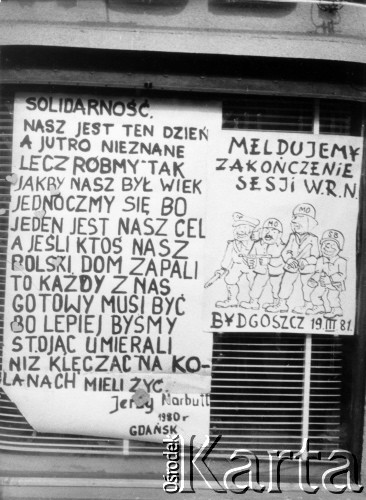 SOLIDARNOŚĆ.
NASZ JEST TEN DZIEŃ
A JUTRO NIEZNANE
LECZ RÓBMY TAK
JAKBY NASZ BYŁ WIEK
JEDNOCZMY SIĘ BO
JEDEN JEST NASZ CEL
A JEŚLI KTOŚ NASZ
POLSKI DOM ZAPALI
TO KAŻDY Z NAS
GOTOWY MUSI BYĆ
BO LEPIEJ BYŚMY
STOJĄC UMIERALI
NIŻ KLĘCZĄC NA KO-
LANACH MIELI ŻYĆ.
Jerzy Narbutt
1980 r
GDAŃSK
MELDUJEMY
ZAKOŃCZENIE
SESJI W.R.N.
MO
SB
BYDGOSZCZ 19 III 81.
Ośrodek Karta